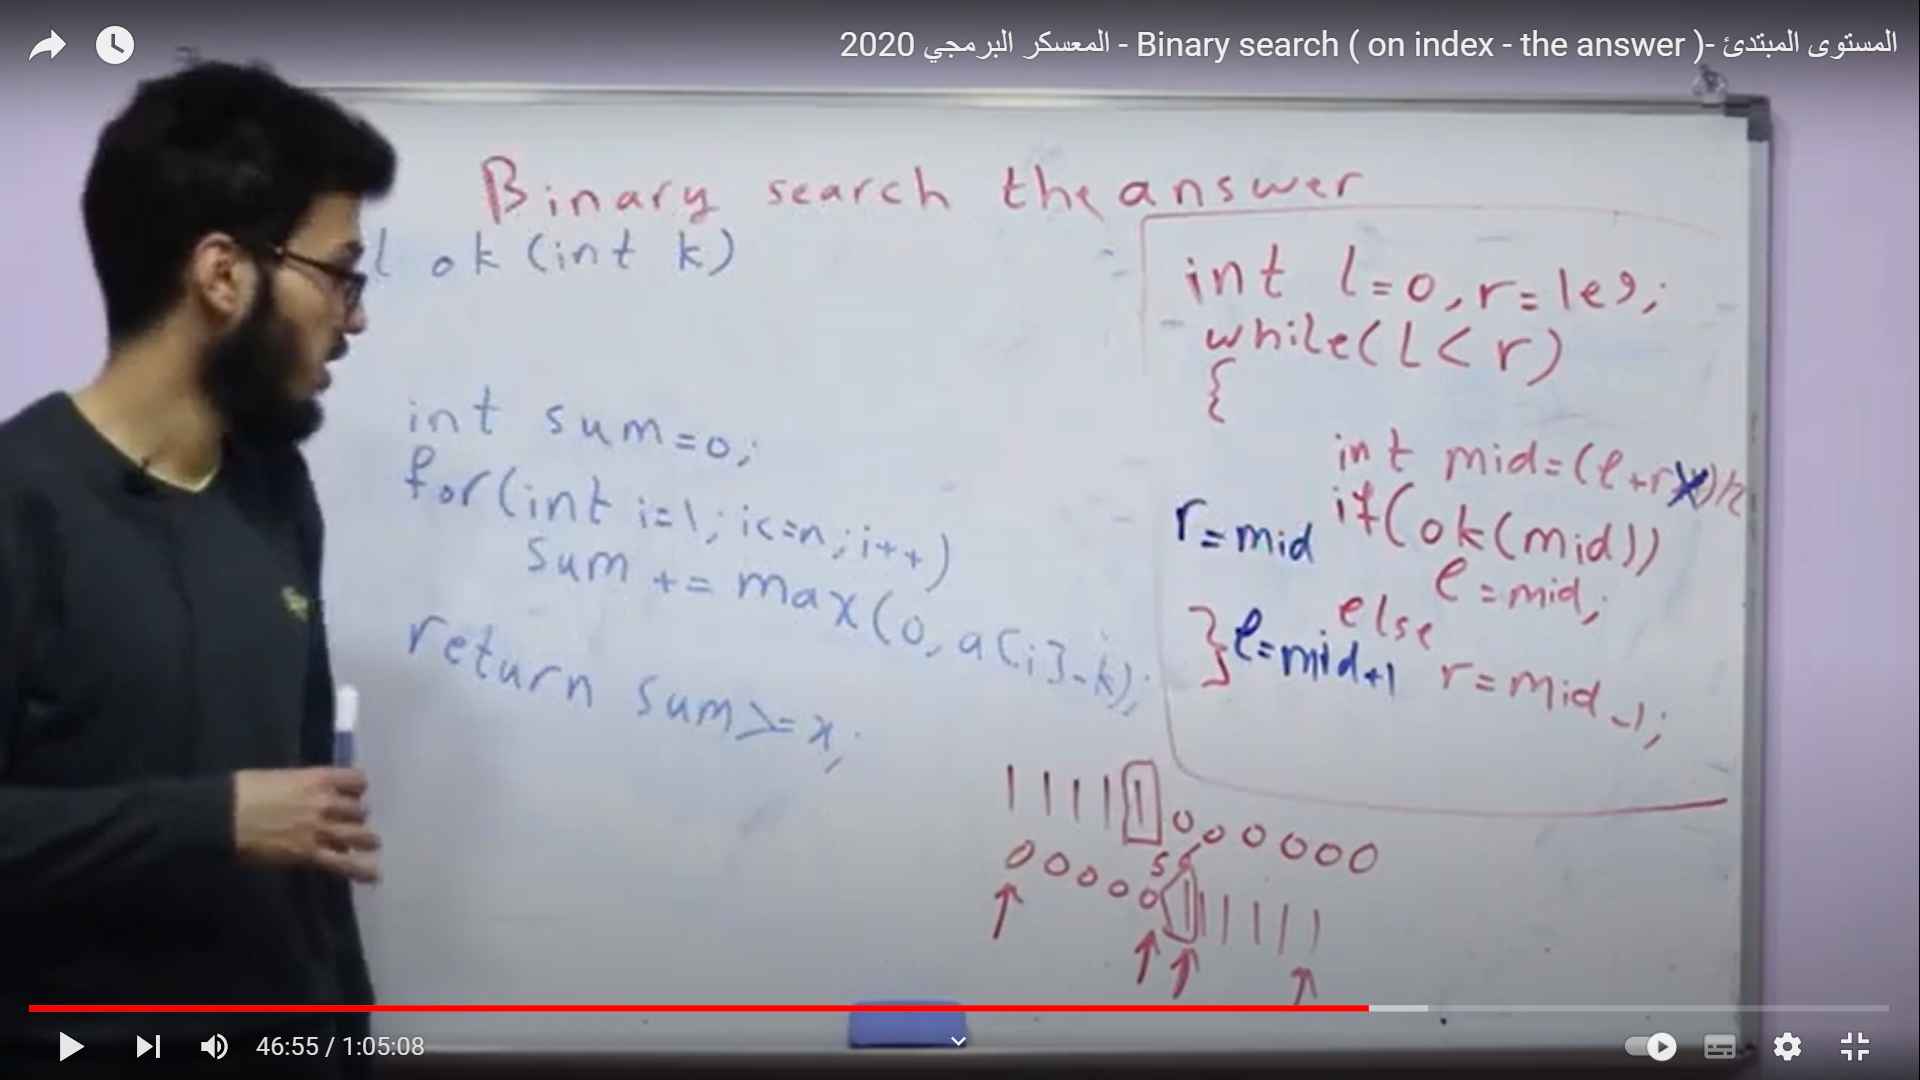 المستوى المبتدئ -( Binary search ( on index - the answer - المعسكر البرمجي 2020
Binary search the answer
l ok (int k)
int sum=0;
for(int i=1; i<=n; i++)
sum += max(0, a[i]-k);
return sum>=x;
int l=0, r=1e9;
while(l<r)
{
int mid=(l+r)/2
if(ok(mid))
l=mid;
else
r=mid-1;
}
r=mid
l=mid+1
1 1 1 1 1 0 0 0 0 0 0
0 0 0 0 0 1 1 1 1 1
46:55 / 1:05:08